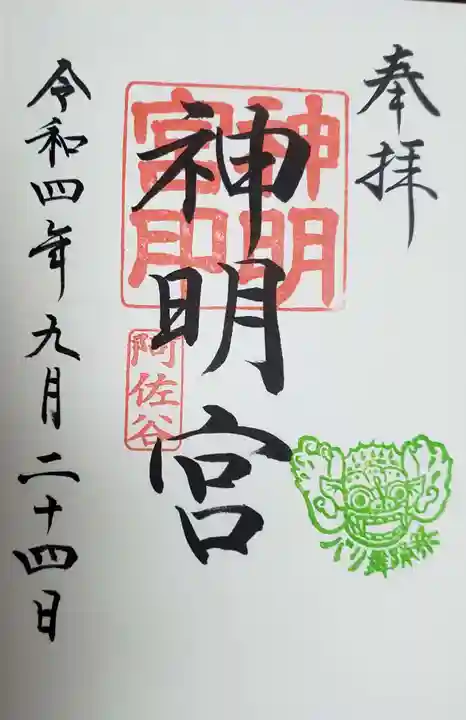 奉拝
神明宮
神明宮印
阿佐谷
バリ舞踊祭
令和四年九月二十四日